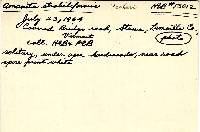 Amanita strobiliformis H&B #13012
July 23, 1964
Conrad Bridge road, Stowe, Lamoille Co.
Vermont
photo
coll. HEB & ACB
solitary, under open hardwoods, near road
spore print white